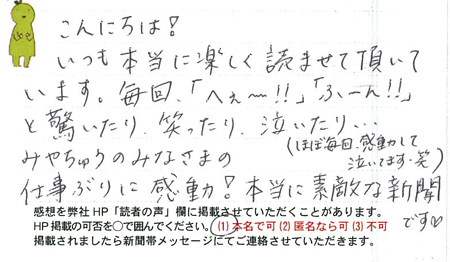 こんにちは!
いつも本当に楽しく読ませて頂いて
います。毎回、「へぇ〜!!」「ふーん!!」
と驚いたり、笑ったり、泣いたり…
(ほぼ毎回、感動して
泣いてます・笑)
みやちゅうのみなさまの
仕事ぶりに感動!本当に素敵な新聞
です♡
感想を弊社HP「読者の声」欄に掲載させていただくことがあります。
HP掲載の可否を○で囲んでください。(1)本名で可(2)匿名なら可(3)不可
掲載されましたら新聞帯メッセージにてご連絡させていただきます。